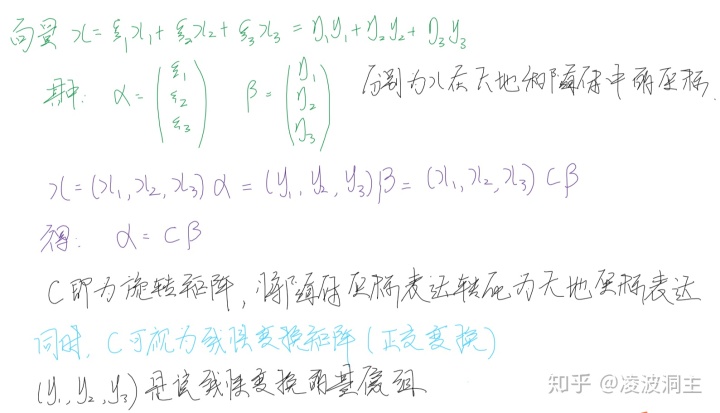 向量 x = ξ₁x₁ + ξ₂x₂ + ξ₃x₃ = η₁y₁ + η₂y₂ + η₃y₃
其中: α = (ξ₁ ξ₂ ξ₃) β = (η₁ η₂ η₃) 分别为x在天地和随体中的坐标.
x = (x₁, x₂, x₃) α = (y₁, y₂, y₃) β = (x₁, x₂, x₃) C β
得: α = C β
C 即为旋转矩阵, 将随体坐标表达转化为天地坐标表达
同时, C 可视为线性变换矩阵 (正交变换)
(y₁, y₂, y₃) 是该线性变换的基像组
知乎 @凌波洞主